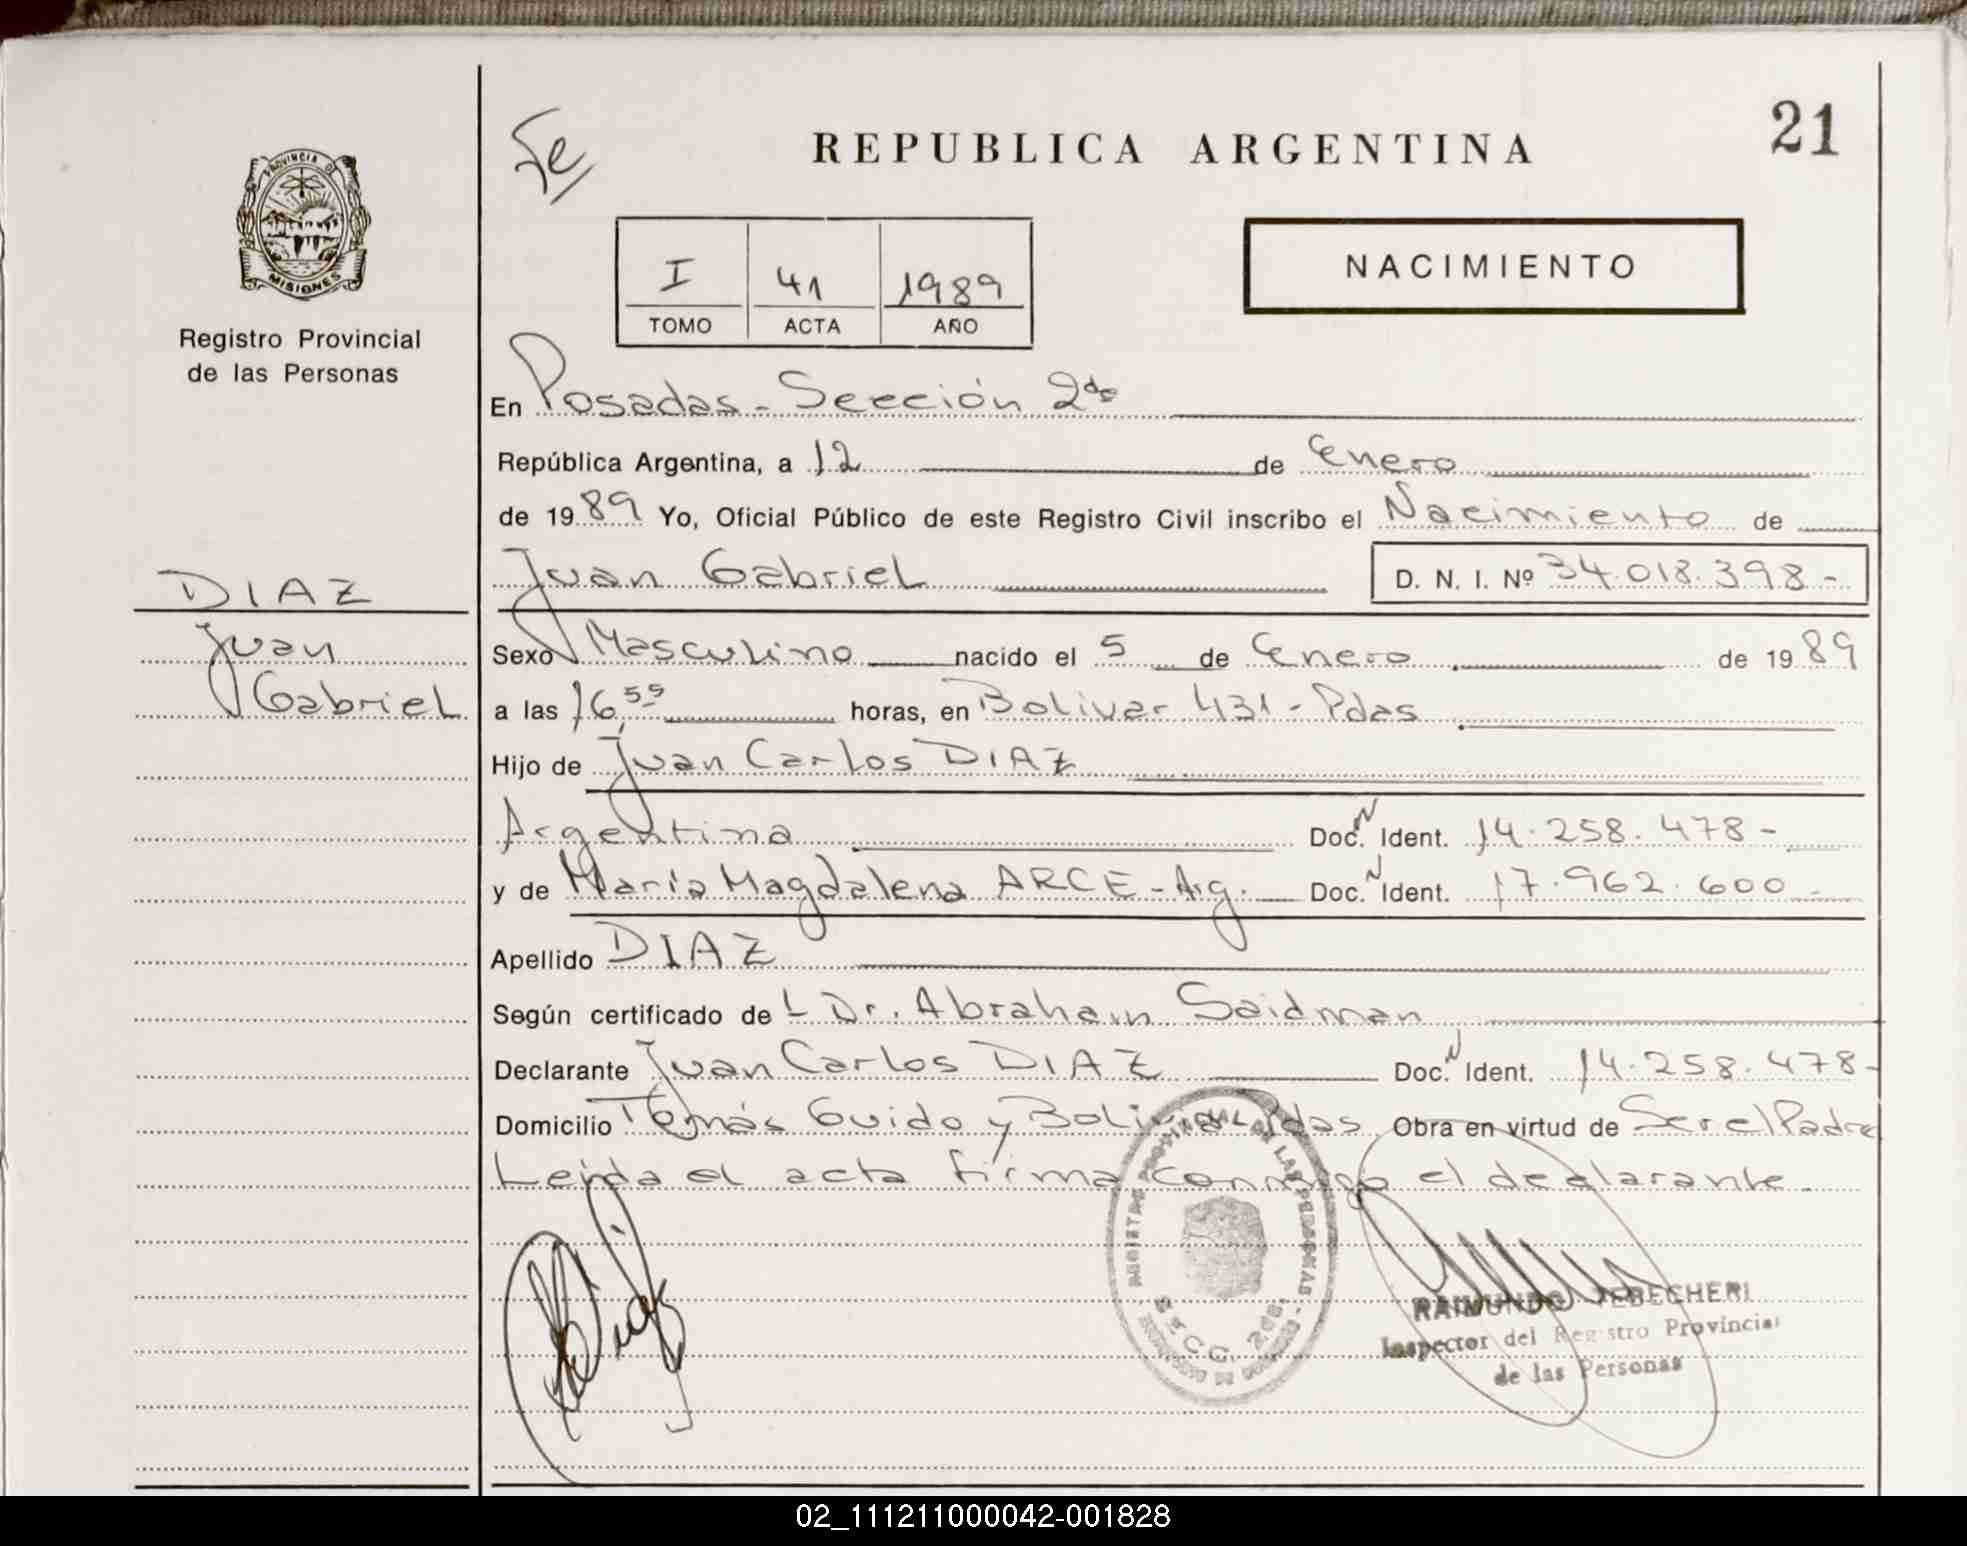 Fe
REPUBLICA ARGENTINA
21
PROVINCIA DE
MISIONES
Registro Provincial
de las Personas
I 41 1989
TOMO ACTA AÑO
NACIMIENTO
En Posadas - Sección 2da
República Argentina, a 12 de Enero
de 1989 Yo, Oficial Público de este Registro Civil inscribo el Nacimiento de
Juan Gabriel D. N. I. Nº 34.018.398-
DIAZ
Juan
Gabriel
Sexo Masculino nacido el 5 de Enero de 1989
a las 16,55 horas, en Bolivar 431 - Pdas
Hijo de Juan Carlos DIAZ
Argentina Doc. N Ident. 14.258.478-
y de María Magdalena ARCE - Arg. Doc. N Ident. 17.962.600-
Apellido DIAZ
Según certificado de L Dr. Abraham Saidman
Declarante Juan Carlos DIAZ Doc. N Ident. 14.258.478-
Domicilio Tomás Guido y Bolivar Pdas Obra en virtud de Ser el Padre
Leída el acta firma conmigo el declarante.
REGISTRO PROVINCIAL DE LAS PERSONAS
SECC. 2da.
RAIMUNDO YEBECHERI
Inspector del Registro Provincial
de las Personas
02_111211000042-001828